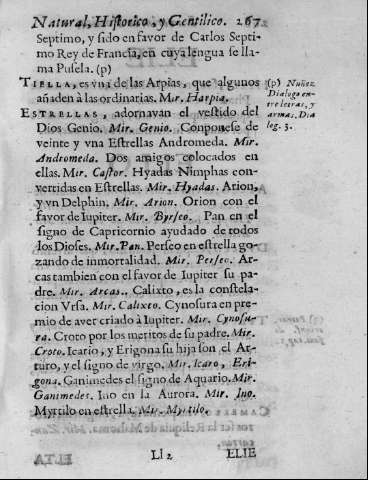 Natural, Historico, y Gentilico. 267
Septimo, y sido en favor de Carlos Septi-
mo Rey de Francia, en cuya lengua se lla-
ma Pusela. (p)
TIELLA, es vna de las Arpias, que algunos
añaden à las ordinarias. Mir. Harpia.
ESTRELLAS, adornavan el vestido del
Dios Genio. Mir. Genio. Conponese de
veinte y vna Estrellas Andromeda. Mir.
Andromeda. Dos amigos colocados en
ellas. Mir. Castor. Hyadas Nimphas con-
vertidas en Estrellas. Mir. Hyadas. Arion,
y vn Delphin. Mir. Arion. Orion con el
favor de Iupiter. Mir. Byrseo. Pan en el
signo de Capricornio ayudado de todos
los Dioses. Mir. Pan. Perseo en estrella go-
zando de inmortalidad. Mir. Perseo. Ar-
cas tambien con el favor de Iupiter su pa-
dre. Mir. Arcas. Calixto, es la constela-
cion Vrsa. Mir. Calixto. Cynosura en pre-
mio de aver criado à Iupiter. Mir. Cynosu-
ra. Croto por los meritos de su padre. Mir.
Croto. Icario, y Erigona su hija son el Ar-
turo, y el signo de virgo. Mir. Icaro, Eri-
gona. Ganimedes el signo de Aquario. Mir.
Ganimedes. Ino en la Aurora. Mir. Ino.
Myrtilo en estrella. Mir. Myrtilo.
(p) Nuñez
Dialogo en-
tre letras, y
armas. Dia
log. 3.
Ll 2 ELIE